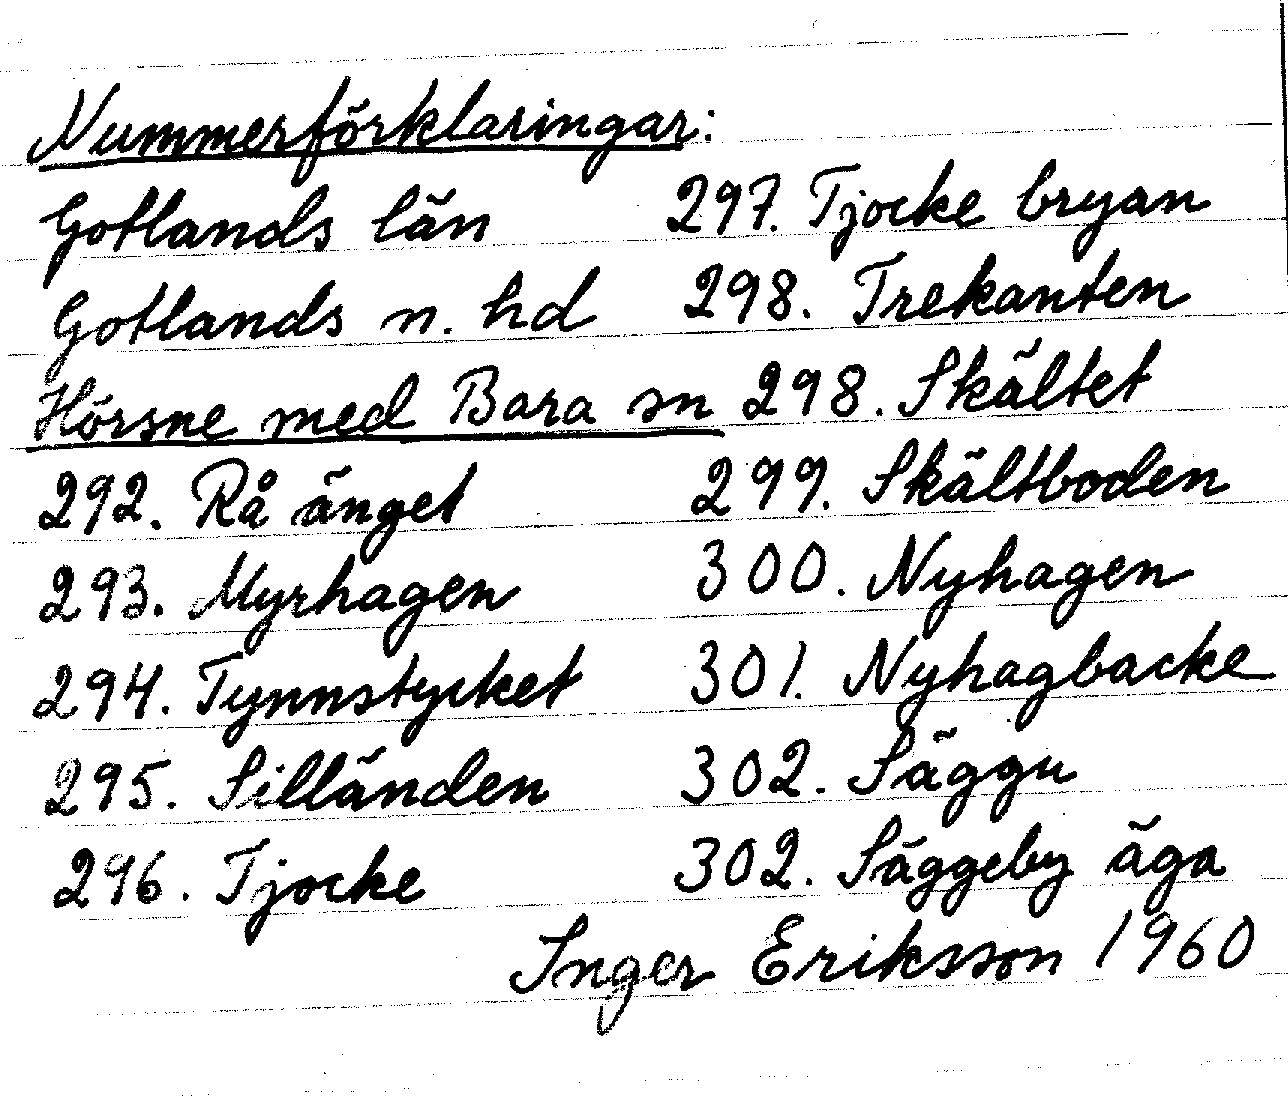 Nummerförklaringar:
Gotlands län
Gotlands n. hd
Hörsne med Bara sn
292. Rå änget
293. Myrhagen
294. Tynnstycket
295. Silländen
296. Tjocke
297. Tjocke bryan
298. Trekanten
298. Skältet
299. Skältboden
300. Nyhagen
301. Nyhagbacke
302. Säggu
302. Säggeby äga
Inger Eriksson 1960